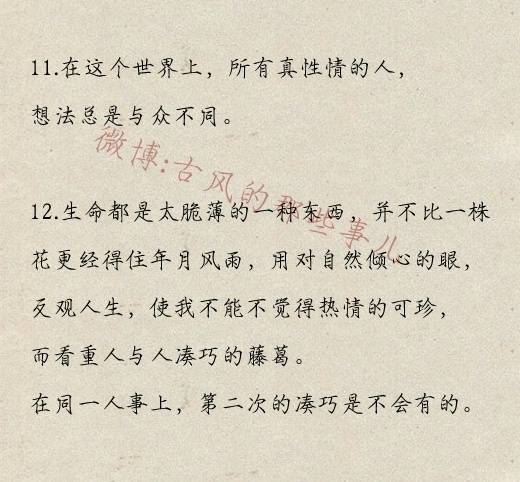 11.在这个世界上，所有真性情的人，
想法总是与众不同。
微博:古风的那些事儿
12.生命都是太脆薄的一种东西，并不比一株
花更经得住年月风雨，用对自然倾心的眼，
反观人生，使我不能不觉得热情的可珍，
而看重人与人凑巧的藤葛。
在同一人事上，第二次的凑巧是不会有的。